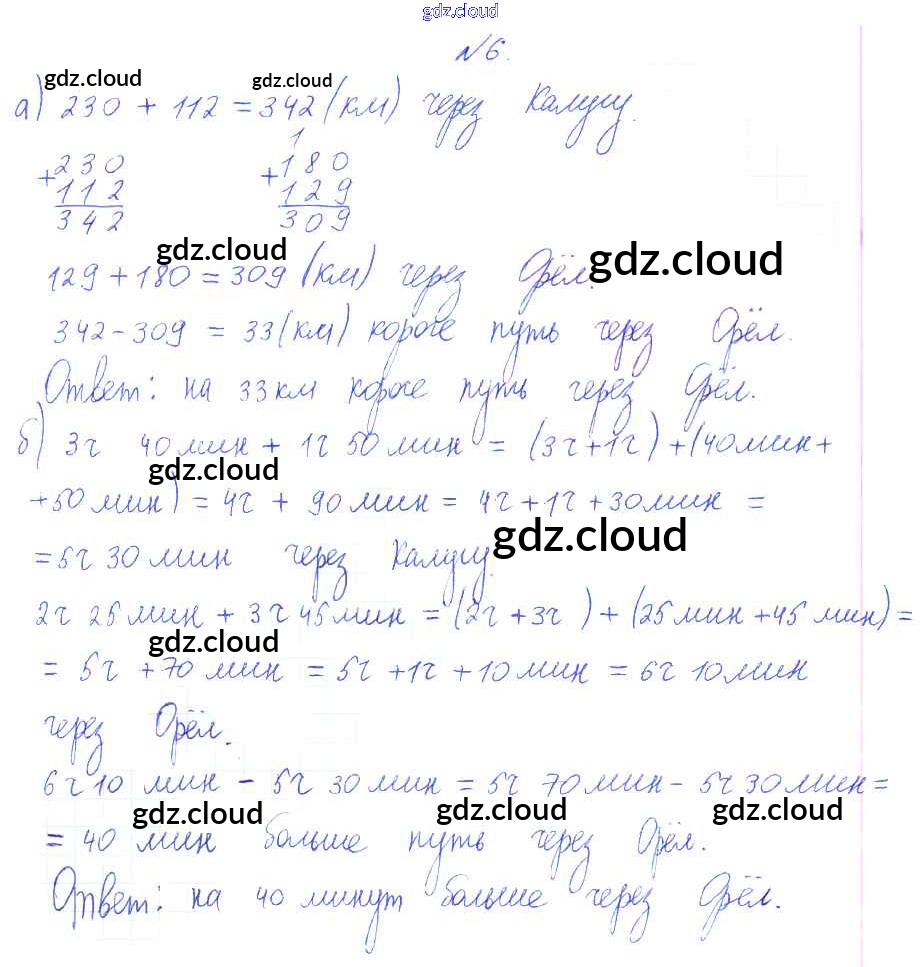 gdz.cloud
№6.
gdz.cloud gdz.cloud
а) 230 + 112 = 342 (км) через Калугу.
1
+230 +180
112 129
342 309
gdz.cloud gdz.cloud
129 + 180 = 309 (км) через Орёл.
342 - 309 = 33 (км) короче путь через Орёл.
Ответ: на 33 км короче путь через Орёл.
б) 3ч 40 мин + 1ч 50 мин = (3ч+1ч) + (40мин+
gdz.cloud
+50 мин) = 4ч + 90 мин = 4ч+1ч+30мин =
gdz.cloud
= 5ч 30 мин через Калугу.
2ч 25 мин + 3ч 45 мин = (2ч+3ч) + (25 мин +45 мин) =
gdz.cloud
= 5ч +70 мин = 5ч +1ч +10 мин = 6ч 10мин
через Орёл.
6ч10 мин - 5ч 30 мин = 5ч 70мин - 5ч30мин =
gdz.cloud gdz.cloud gdz.cloud
= 40 мин больше путь через Орёл.
Ответ: на 40 минут больше через Орёл.